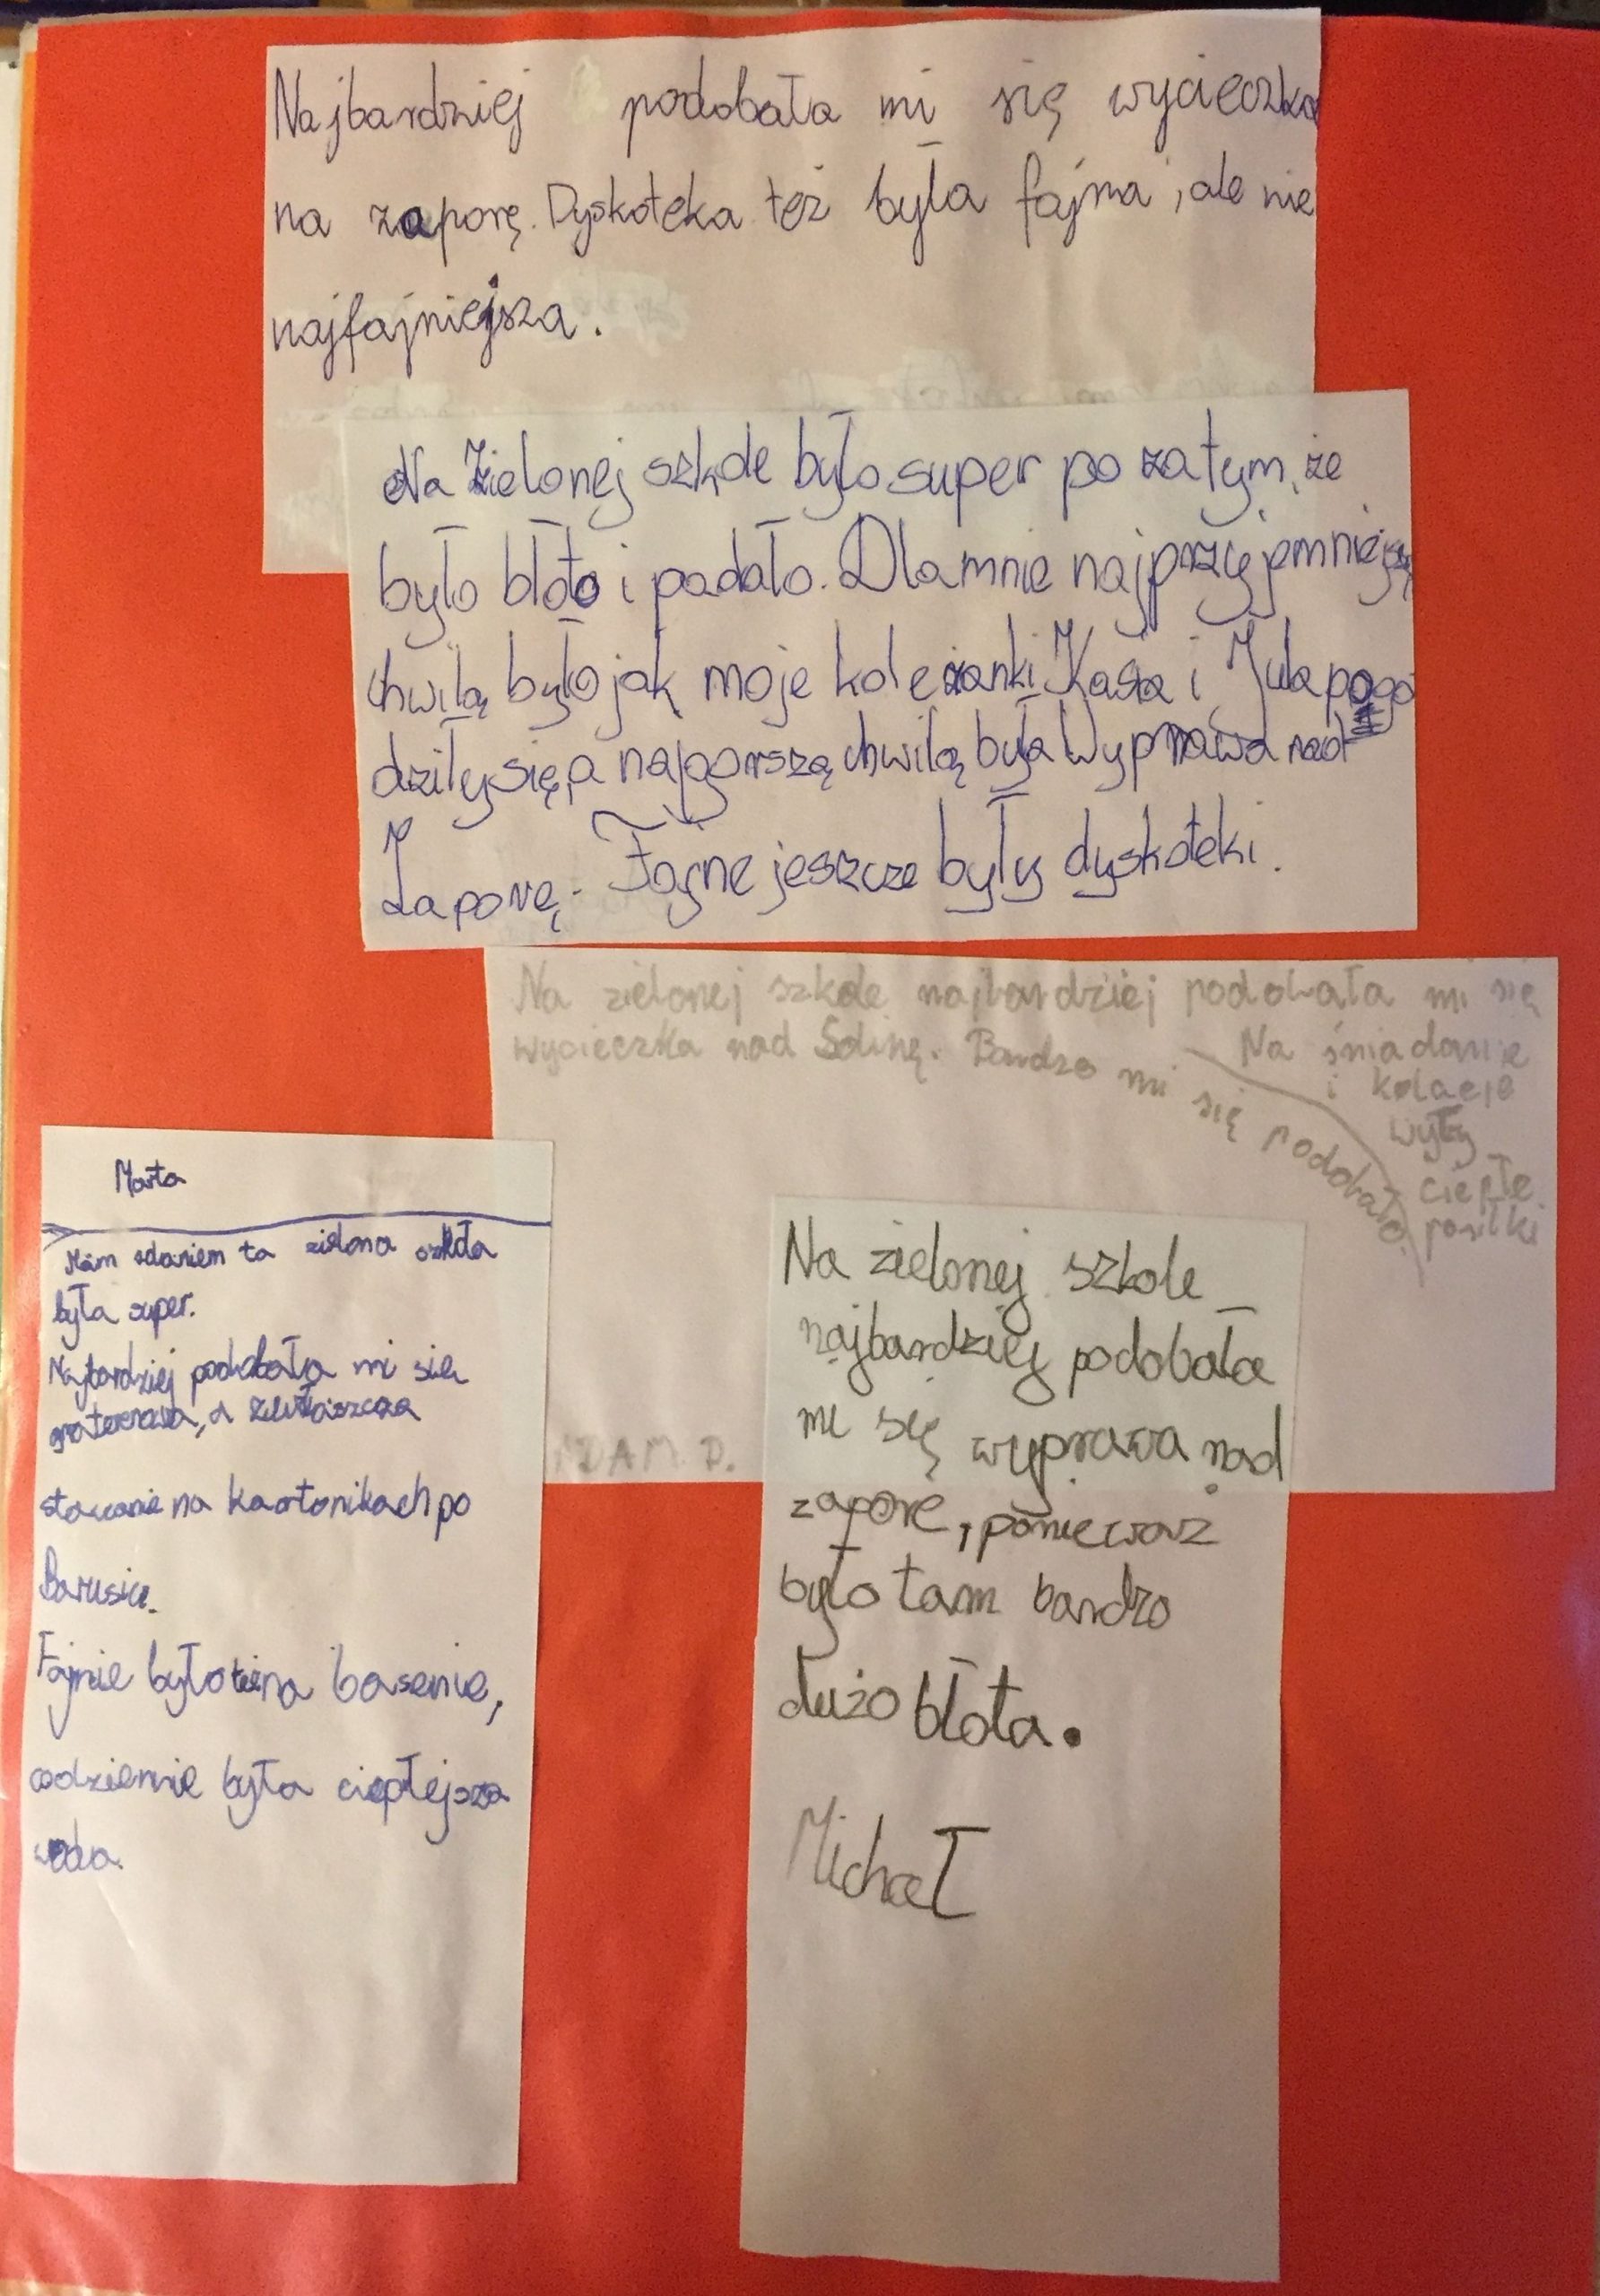 Najbardziej podobała mi się wycieczka
na zaporę. Dyskoteka też była fajna, ale nie
najfajniejsza.
Na Zielonej szkole było super po za tym, że
było błoto i padało. Dla mnie najprzyjemniejszą
chwilą było jak moje koleżanki Kasia i Jula pogo
dziły się, a najgorszą chwilą była Wyprawa nad
Zaporę. Fajne jeszcze były dyskoteki.
Na zielonej szkole najbardziej podobała mi się
wycieczka nad Solinę. Bardzo mi się podobało.
Na śniadanie
i kolacje
były
ciepłe
posiłki
ADAM D.
Marta
Moim zdaniem ta zielona szkoła
była super.
Najbardziej podobała mi się
gra terenowa, a zwłaszcza
stawanie na kartonikach po
Fajnie było też na basenie,
codziennie była cieplejsza
woda.
Na zielonej szkole
najbardziej podobała
mi się wyprawa nad
zaporę, ponieważ
było tam bardzo
dużo błota.
Michał